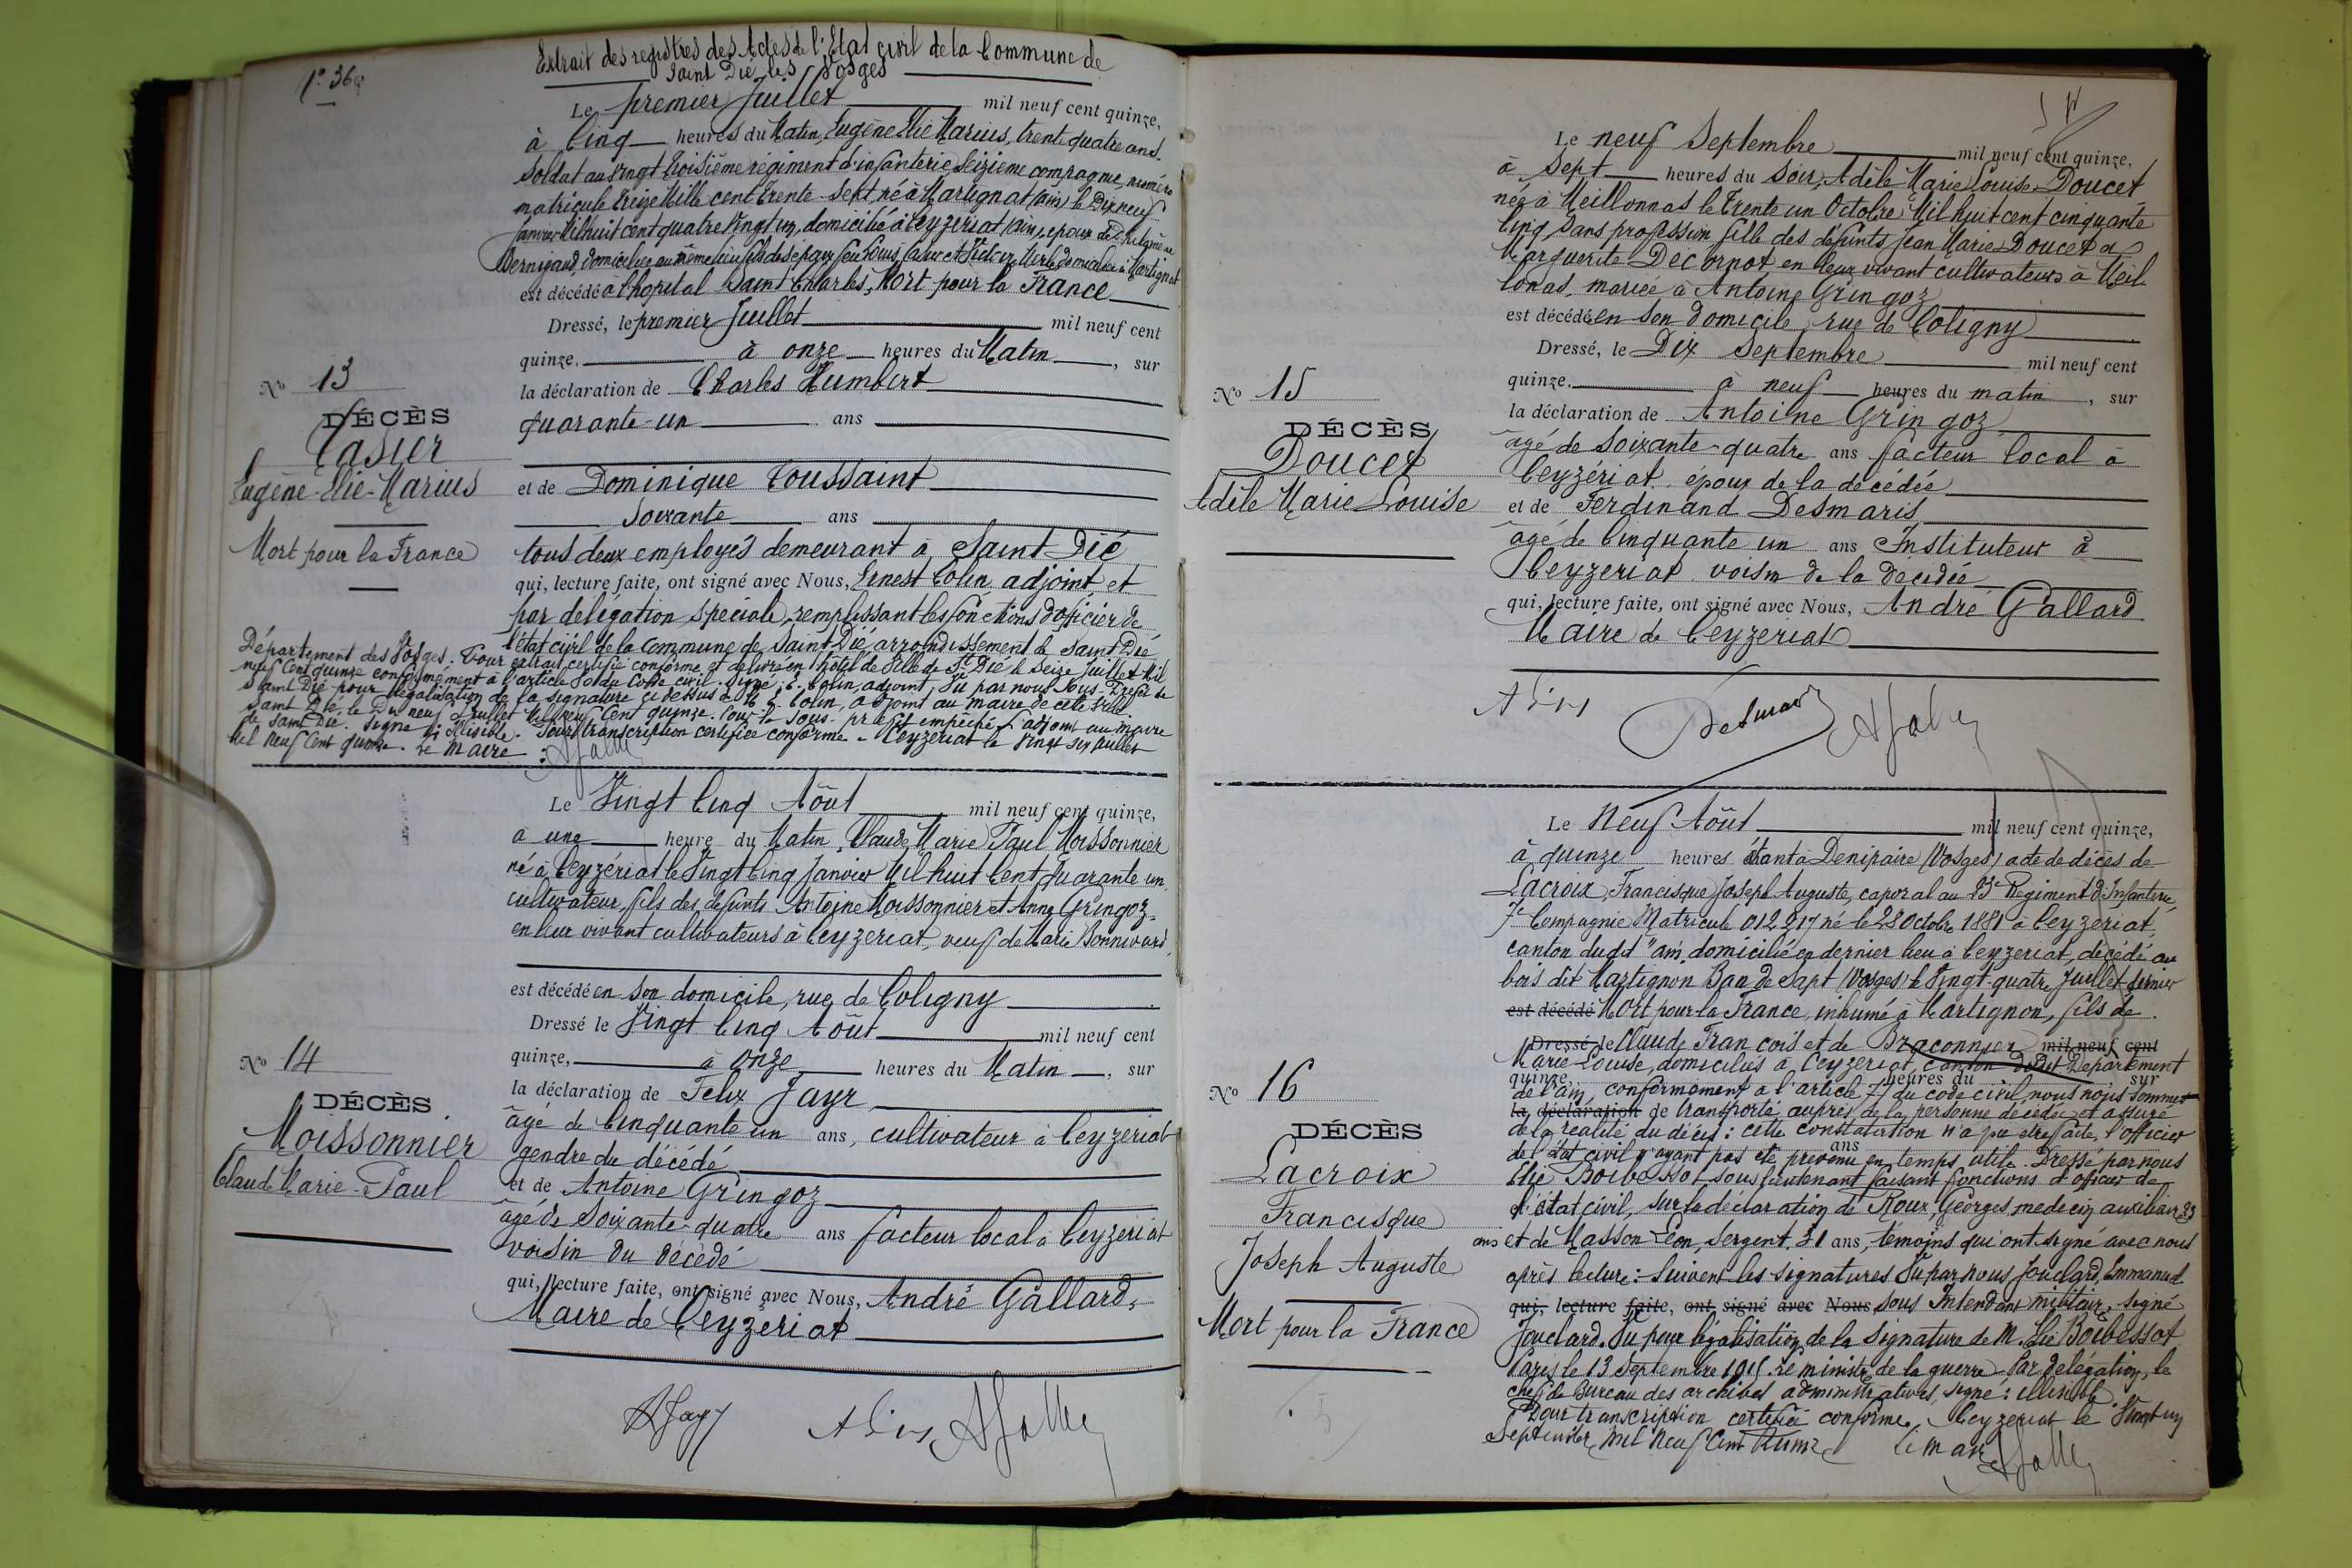 Extrait des registres des Actes de l'Etat civil de la Commune de
Saint Dié les Vosges
Le premier Juillet mil neuf cent quinze,
à Cinq heures du Matin, Eugène Elie Marius, trente quatre ans,
soldat au Vingt troisième régiment d'infanterie seizième compagnie, numéro
matricule treize Mille cent trente-sept né à Martignat (Ain) le Dix neuf
Janvier Mil huit cent quatre Vingt un, domicilié à Ceyzériat (Ain), époux de
domiciliée au même lieu fils des époux domiciliés à Martignat
est décédé à l'hopital Saint Charles, Mort pour la France
Dressé, le premier Juillet mil neuf cent
quinze, à onze heures du Matin, sur
la déclaration de Charles Humbert
quarante-un ans
et de Dominique Toussaint
Soixante ans
tous deux employés demeurant à Saint Dié
qui, lecture faite, ont signé avec Nous, Ernest Colin, adjoint, et
par délégation spéciale, remplissant les fonctions d'officier de
l'état civil de la commune de Saint-Dié, arrondissement de Saint Dié
Département des Vosges. Pour extrait certifié conforme et délivré en l'hôtel de Ville de St Dié le seize Juillet Mil
neuf Cent quinze conformément à l'article 80 du Code civil. Signé: E. Colin, adjoint, Vu par nous Sous-Préfet de
Saint Dié pour légalisation de la signature ci dessus de M. E. Colin, adjoint au maire de cette Ville
Saint Dié, le Dix neuf Juillet Mil neuf Cent quinze. Pour le Sous-préfet empêché l'adjoint au maire
de Saint Dié. Signé illisible. Pour transcription certifiée conforme. Ceyzeriat le Vingt six Juillet
Mil Neuf Cent quinze. Le Maire:
No 13
DÉCÈS
Eugène-Elie-Marius
Mort pour la France
Le Vingt Cinq Août mil neuf cent quinze,
à une heure du Matin, Claude Marie Paul Moissonnier
né à Ceyzériat le Vingt Cinq Janvier Mil huit Cent quarante un,
cultivateur, fils des défunts Antoine Moissonnier et Anne Gringoz
en leur vivant cultivateurs à Ceyzeriat, veuf de Marie Bonnivard,
est décédé en son domicile, rue de Coligny
Dressé le Vingt Cinq Août mil neuf cent
quinze, à onze heures du Matin, sur
la déclaration de Felix Jayr
âgé de Cinquante un ans, cultivateur à Ceyzeriat
gendre du décédé
et de Antoine Gringoz
âgé de Soixante-quatre ans facteur local à Ceyzériat
voisin du décédé
qui, lecture faite, ont signé avec Nous, André Gallard,
Maire de Ceyzériat
No 14
DÉCÈS
Moissonnier
Claude Marie-Paul
Le neuf Septembre mil neuf cent quinze,
à Sept heures du Soir, Adèle Marie Louise Doucet
née à Meillonnas le trente un Octobre Mil huit cent cinquante
Cinq Sans profession fille des défunts Jean Marie Doucet et
Marguerite Decornot, en leur vivant cultivateurs à Meil-
lonas, mariée à Antoine Gringoz
est décédée en son domicile rue de Coligny
Dressé, le Dix Septembre mil neuf cent
quinze, à neuf heures du matin, sur
la déclaration de Antoine Gringoz
âgé de Soixante-quatre ans facteur local à
Ceyzériat, époux de la décédée
et de Ferdinand Desmaris
âgé de Cinquante un ans Instituteur à
Ceyzeriat voisin de la décédée
qui, lecture faite, ont signé avec Nous, André Gallard
Maire de Ceyzeriat
No 15
DÉCÈS
Doucet
Adèle Marie Louise
Le Neuf Août mil neuf cent quinze,
à quinze heures étant à Denipaire (Vosges) acte de décès de
Lacroix, Francisque Joseph Auguste, caporal au 23e Régiment d'Infanterie,
7e Compagnie Matricule 012917 né le 28 Octobre 1881 à Ceyzeriat,
canton dudit Ain, domicilié en dernier lieu à Ceyzeriat, décédé au
bois dit Martignon Ban de Sapt (Vosges) le Vingt-quatre Juillet dernier
est décédé Mort pour la France, inhumé à Martignon, fils de
Dressé le Claude François et de Braconnier mil neuf cent
Marie-Louise, domiciliés à Ceyzeriat, canton dudit Département
quinze, heures du sur
de l'Ain, conformément à l'article 77 du code civil, nous nous sommes
la déclaration de transporté auprès de la personne décédée et assuré
de la réalité du décès: cette constatation n'a pu être faite, l'officier
ans
de l'état civil n'ayant pas été prévenu en temps utile. Dressé par nous
Elie Boibessot sous lieutenant faisant fonctions d'officier de
l'état civil, sur la déclaration de Roux, Georges medecin auxiliaire 23
ans et de Masson Léon, Sergent, 31 ans, témoins qui ont signé avec nous
après lecture: Suivent les signatures. Vu par nous Jouclard, Emmanuel
qui, lecture faite, ont signé avec Nous, sous Intendant militaire, signé
Jouclard. Vu pour légalisation de la signature de M. Elie Boibessot
Paris le 13 Septembre 1915. le ministre de la guerre. Par délégation, le
chef de Bureau des archives administratives, signé: illisible
Pour transcription certifiée conforme. Ceyzeriat le Vingt un
Septembre Mil Neuf Cent Quinze Le Maire
No 16
DÉCÈS
Lacroix
Francisque
Joseph Auguste
Mort pour la France